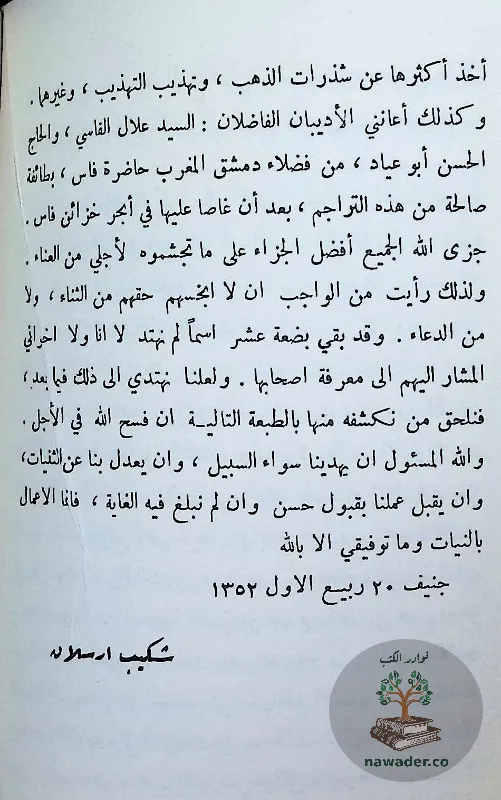 أخذ أكثرها عن شذرات الذهب ، وتهذيب التهذيب ، وغيرهما .
وكذلك أعانني الأديبان الفاضلان : السيد علال الفاسي ، والحاج
الحسن أبو عياد ، من فضلاء دمشق المغرب حاضرة فاس ، بطائفة
صالحة من هذه التراجم ، بعد أن غاصا عليها في أبحر خزائن فاس .
جزى الله الجميع أفضل الجزاء على ما تجشموه لأجلي من العناء .
ولذلك رأيت من الواجب ان لا ابخسهم حقهم من الثناء ، ولا
من الدعاء . وقد بقي بضعة عشر اسماً لم نهتد لا انا ولا اخراني
المشار اليهم الى معرفة اصحابها . ولعلنا نهتدي الى ذلك فيما بعد ،
فنلحق من نكشفه منها بالطبعة التالية ان فسح الله في الأجل .
والله المسئول ان يهدينا سواء السبيل ، وان يعدل بنا عن الثنيات ،
وان يقبل عملنا بقبول حسن وان لم نبلغ فيه الغاية ، فانما الأعمال
بالنيات وما توفيقي الا بالله
جنيف ٢٠ ربيع الاول ١٣٥٢
شكيب ارسلان
نوادر الكتب
nawader.co